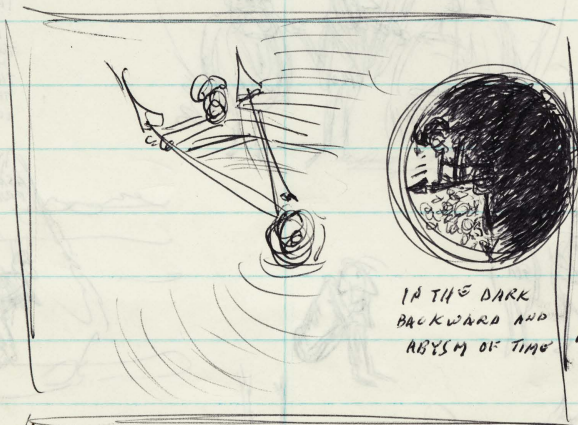 IN THE DARK
BACKWARD AND
ABYSM OF TIME